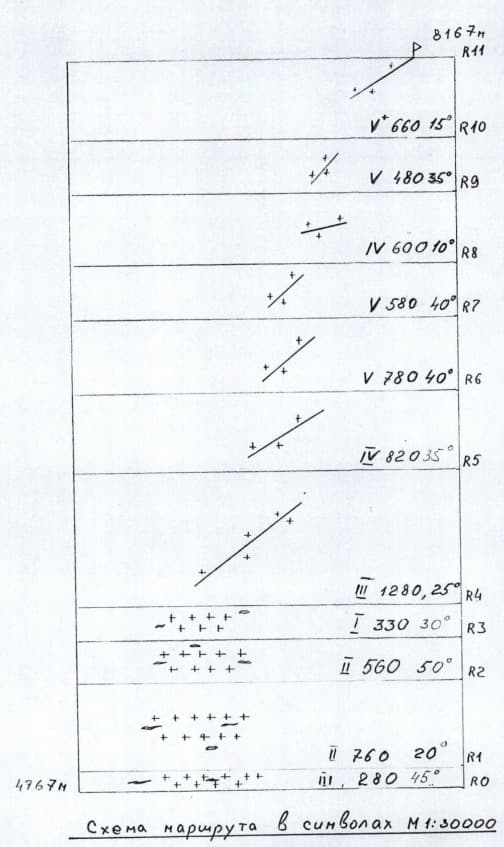 8167м
R11
V⁺ 660 15° R10
V 480 35° R9
IV 600 10° R8
V 580 40° R7
V 780 40° R6
IV 820 35° R5
III 1280, 25° R4
I 330 30° R3
II 560 50° R2
II 760 20° R1
4767м III. 280 45° R0
Схема маршрута в символах М 1:30000